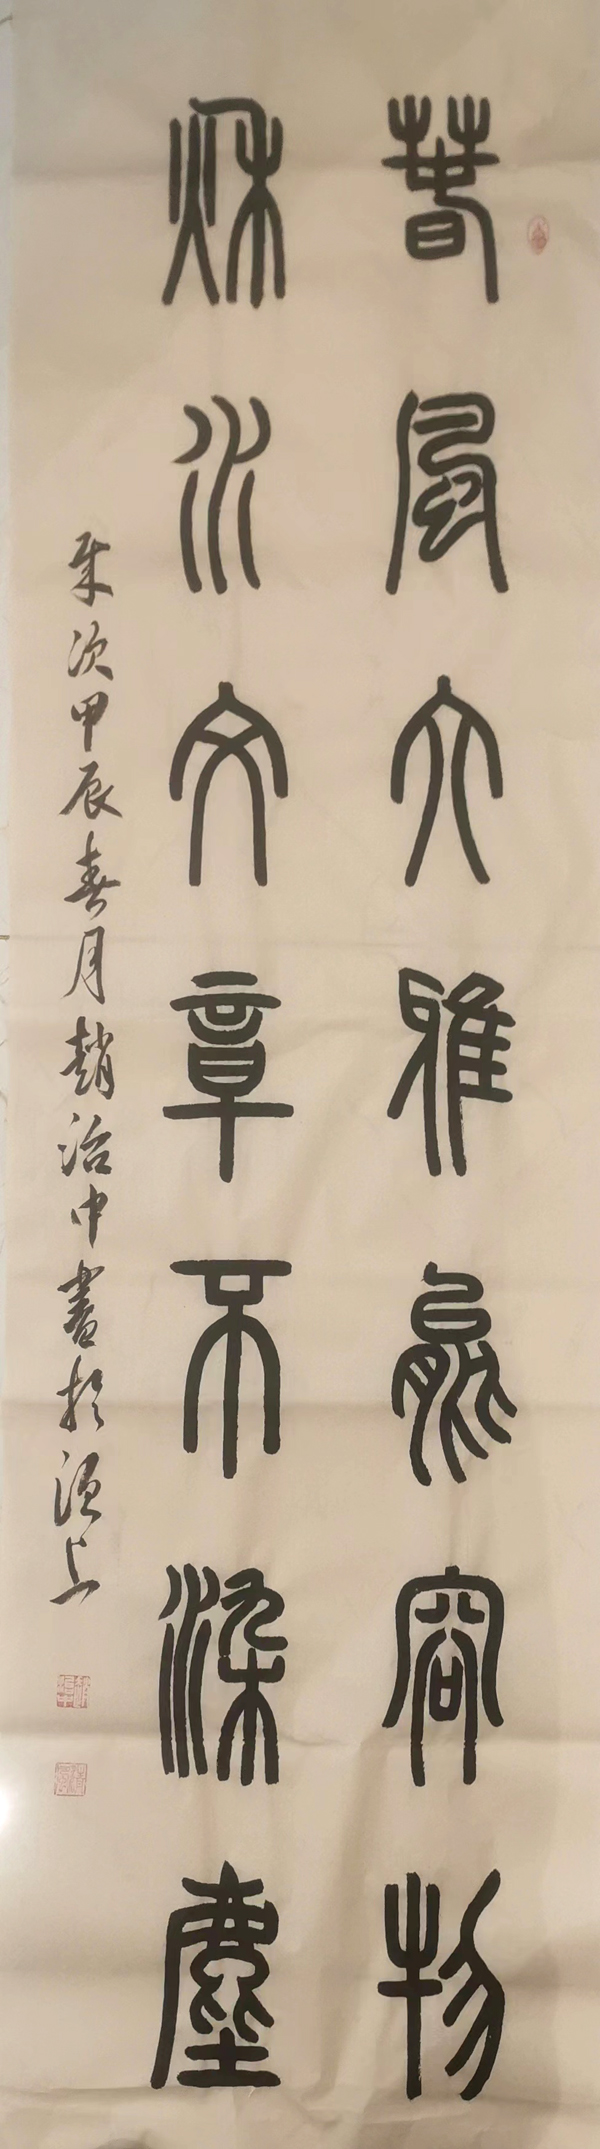 春風大雅能容物
秋水文章不染塵
歲次甲辰春月趙治中書於湏上